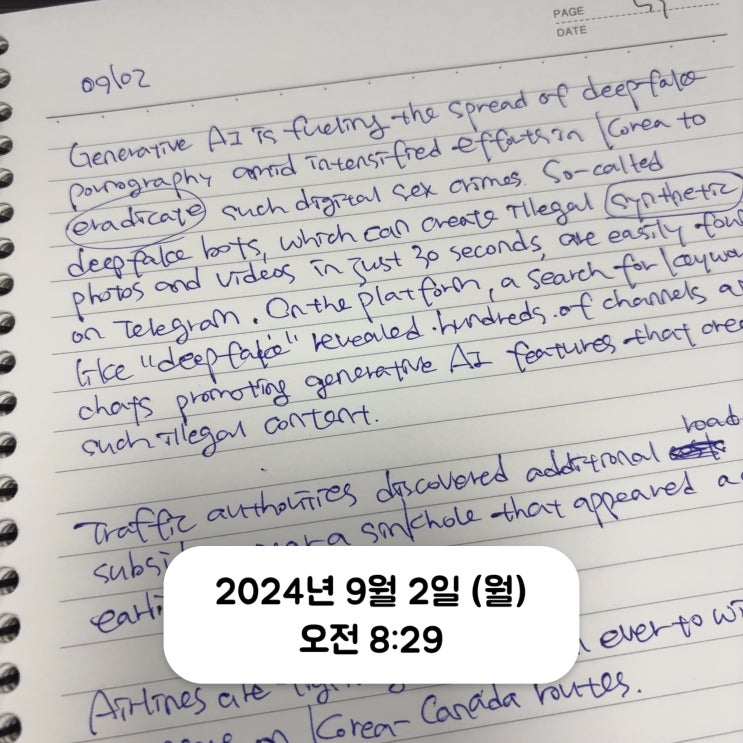 PAGE
DATE
09/02
Generative AI is fueling the spread of deepfake
pornography amid intensified efforts in Korea to
eradicate such digital sex crimes. So-called
deepfake bots, which can create illegal synthetic
photos and videos in just 30 seconds, are easily
on Telegram. On the platform, a search for
like "deepfake" revealed hundreds of channels
chats promoting generative AI features that
such illegal content.
road
Traffic authorities discovered additional
a sinkhole that appeared
ever to
Airlines are
on Korea-Canada routes.
2024년 9월 2일 (월)
오전 8:29